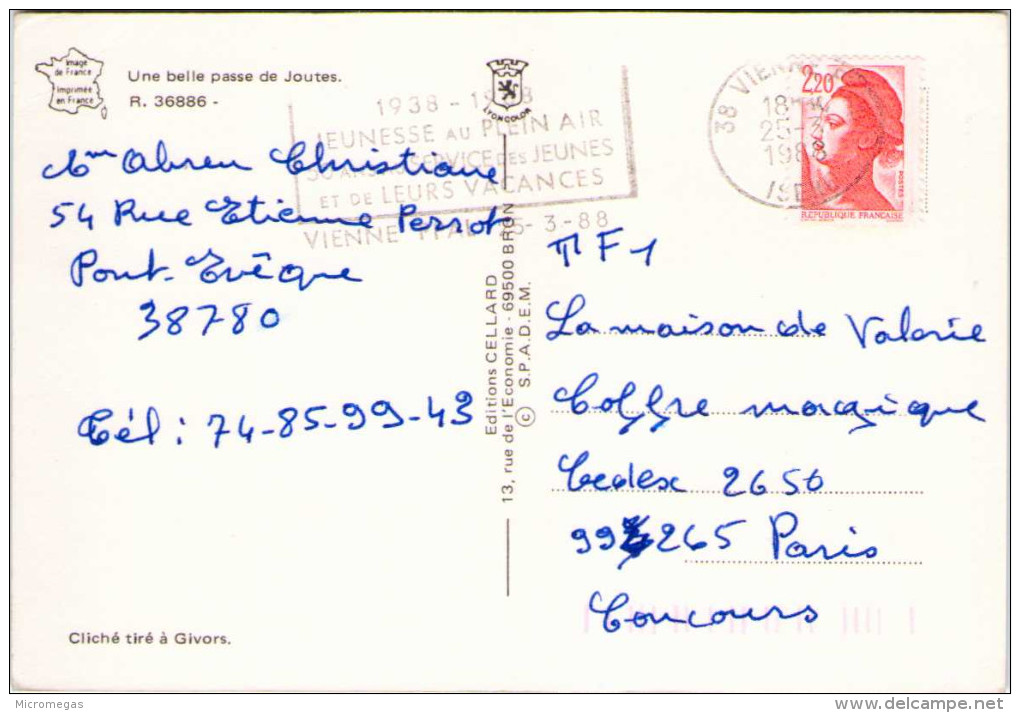 Image
de France
Imprimée
en France
Une belle passe de Joutes.
R. 36886 -
LYONCOLOR
1938 - 1988
JEUNESSE AU PLEIN AIR
50 ANS AU SERVICE DES JEUNES
ET DE LEURS VACANCES
VIENNE PPAL 25-3-88
38 VIENNE
18H
25-3
1988
ISERE
2,20
POSTES
REPUBLIQUE FRANCAISE
Mme Abreu Christiane
54 Rue Etienne Perrot
Pont-Evêque
38780
Tél: 74-85-99-43
Editions CELLARD
13, rue de l'Economie - 69500 BRON
© S.P.A.D.E.M.
TF1
La maison de Valérie
Coffre magique
Cedex 2650
99265 Paris
Concours
Cliché tiré à Givors.
Micromegas